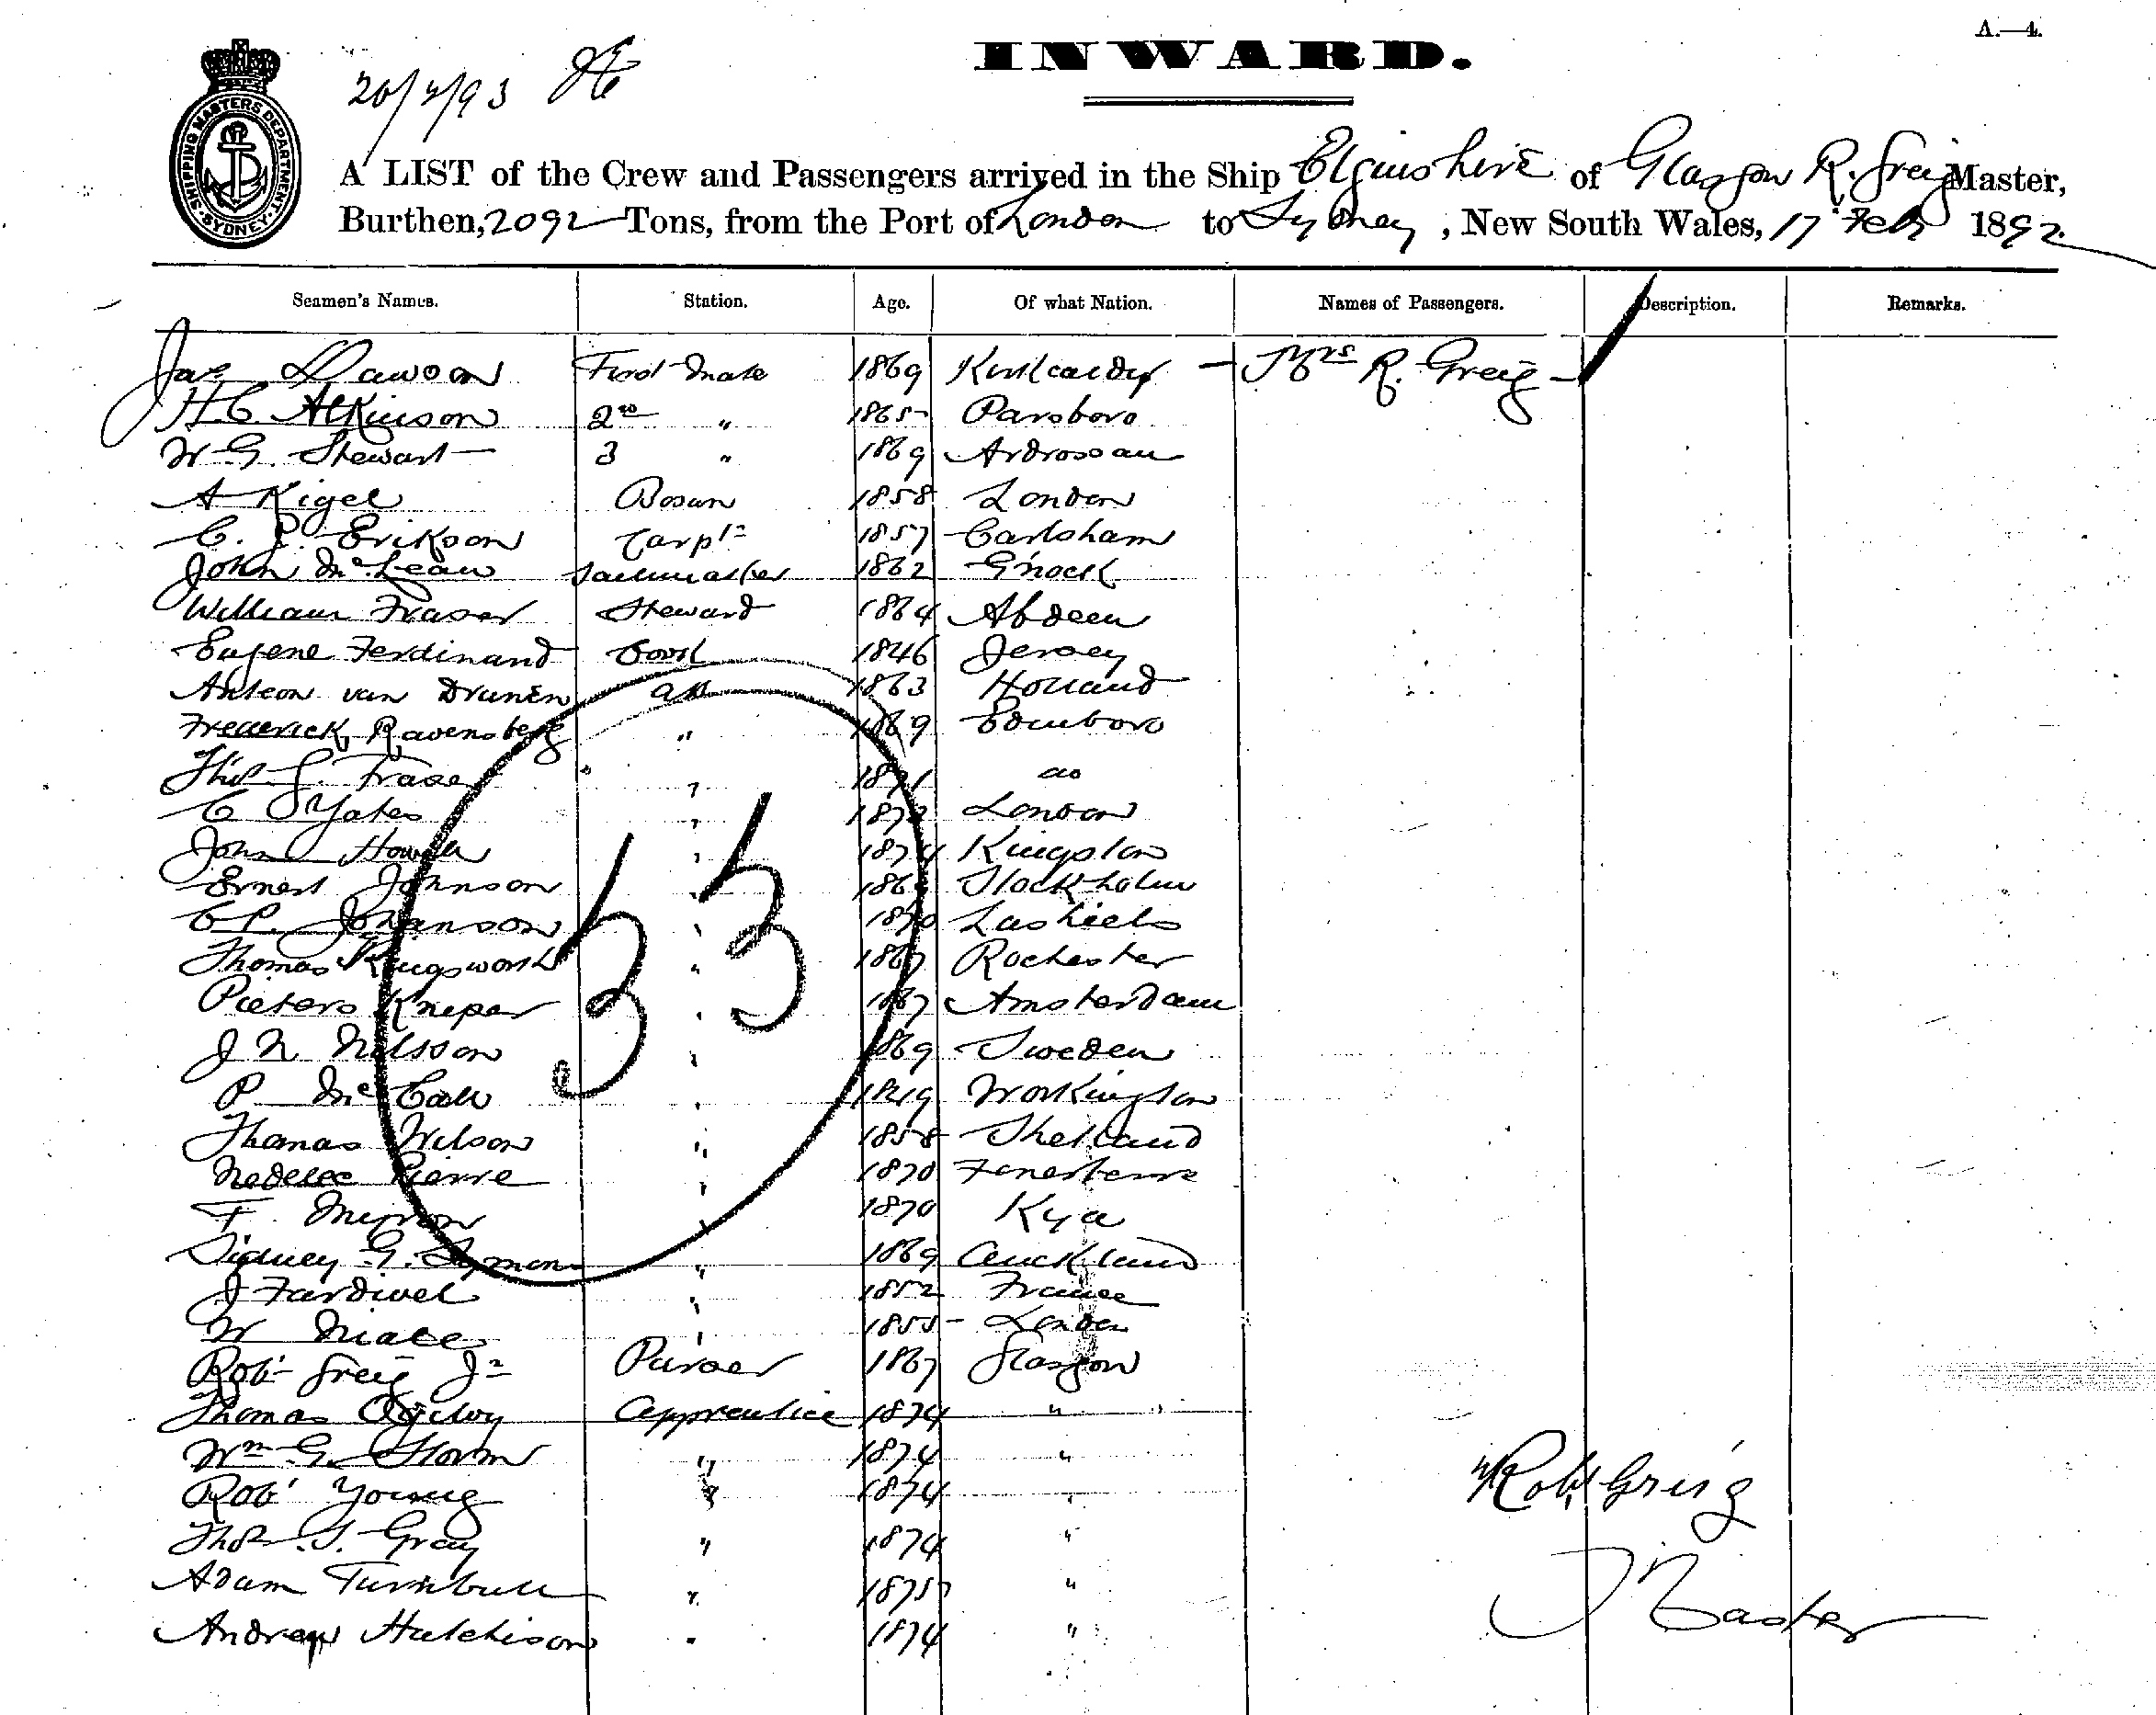 A.—4.
INWARD.
SHIPPING MASTERS DEPARTMENT
SYDNEY
A LIST of the Crew and Passengers arrived in the Ship Elginshire of Glasgow R. Greig Master,
Burthen, 2092 Tons, from the Port of London to Sydney, New South Wales, 17 Feb 1892
Seamen's Names. Station. Age. Of what Nation. Names of Passengers. Description. Remarks.
Jas Dawson First Mate 1869 Kirkcaldy — Mrs R. Greig —
H.C. Atkinson 2nd " 1865 Parsboro
W. G. Stewart 3 " 1869 Ardrossan
A Rigel Bosun 1858 London
C. P. Erikson Carptr 1857 Carlsham
John McLean Sailmaker 1862 G'nock
William Fraser Steward 1864 Abdeen
Eugene Ferdinand Cook 1846 Jersey
Anteon van Drunen AB 1863 Holland
Frederick Ravensberg " 1869 Edinboro
Thos J. Fraser " 1871 do
C Yates " 1873 London
John Howell " 1874 Kingston
Ernest Johnson " 1869 Stockholm
C P. Johanson " 1870
Thomas Kingsworth " 1867 Rochester
Pieters Kneper " 1867 Amsterdam
J N Nilsson " 1869 Sweden
P McCall " 1849 Workington
Thomas Wilson " 1858 Shetland
Nedelec Pierre " 1870 Fenesterre
F. " 1870 Kya
Sidney G. Lyman " 1869 Auckland
J Fardivel " 1852 France
W " 1855 London
Robt Greig Jr Purser 1867 Glasgow
Thomas Ogilvy Apprentice 1874 "
Wm G. Storm " 1874 "
Robt Young " 1874 "
Thos J. Gray " 1874 "
Adam Turnbull " 1875 "
Andrew Hutchison " 1874 "
33
Robt Greig
Master